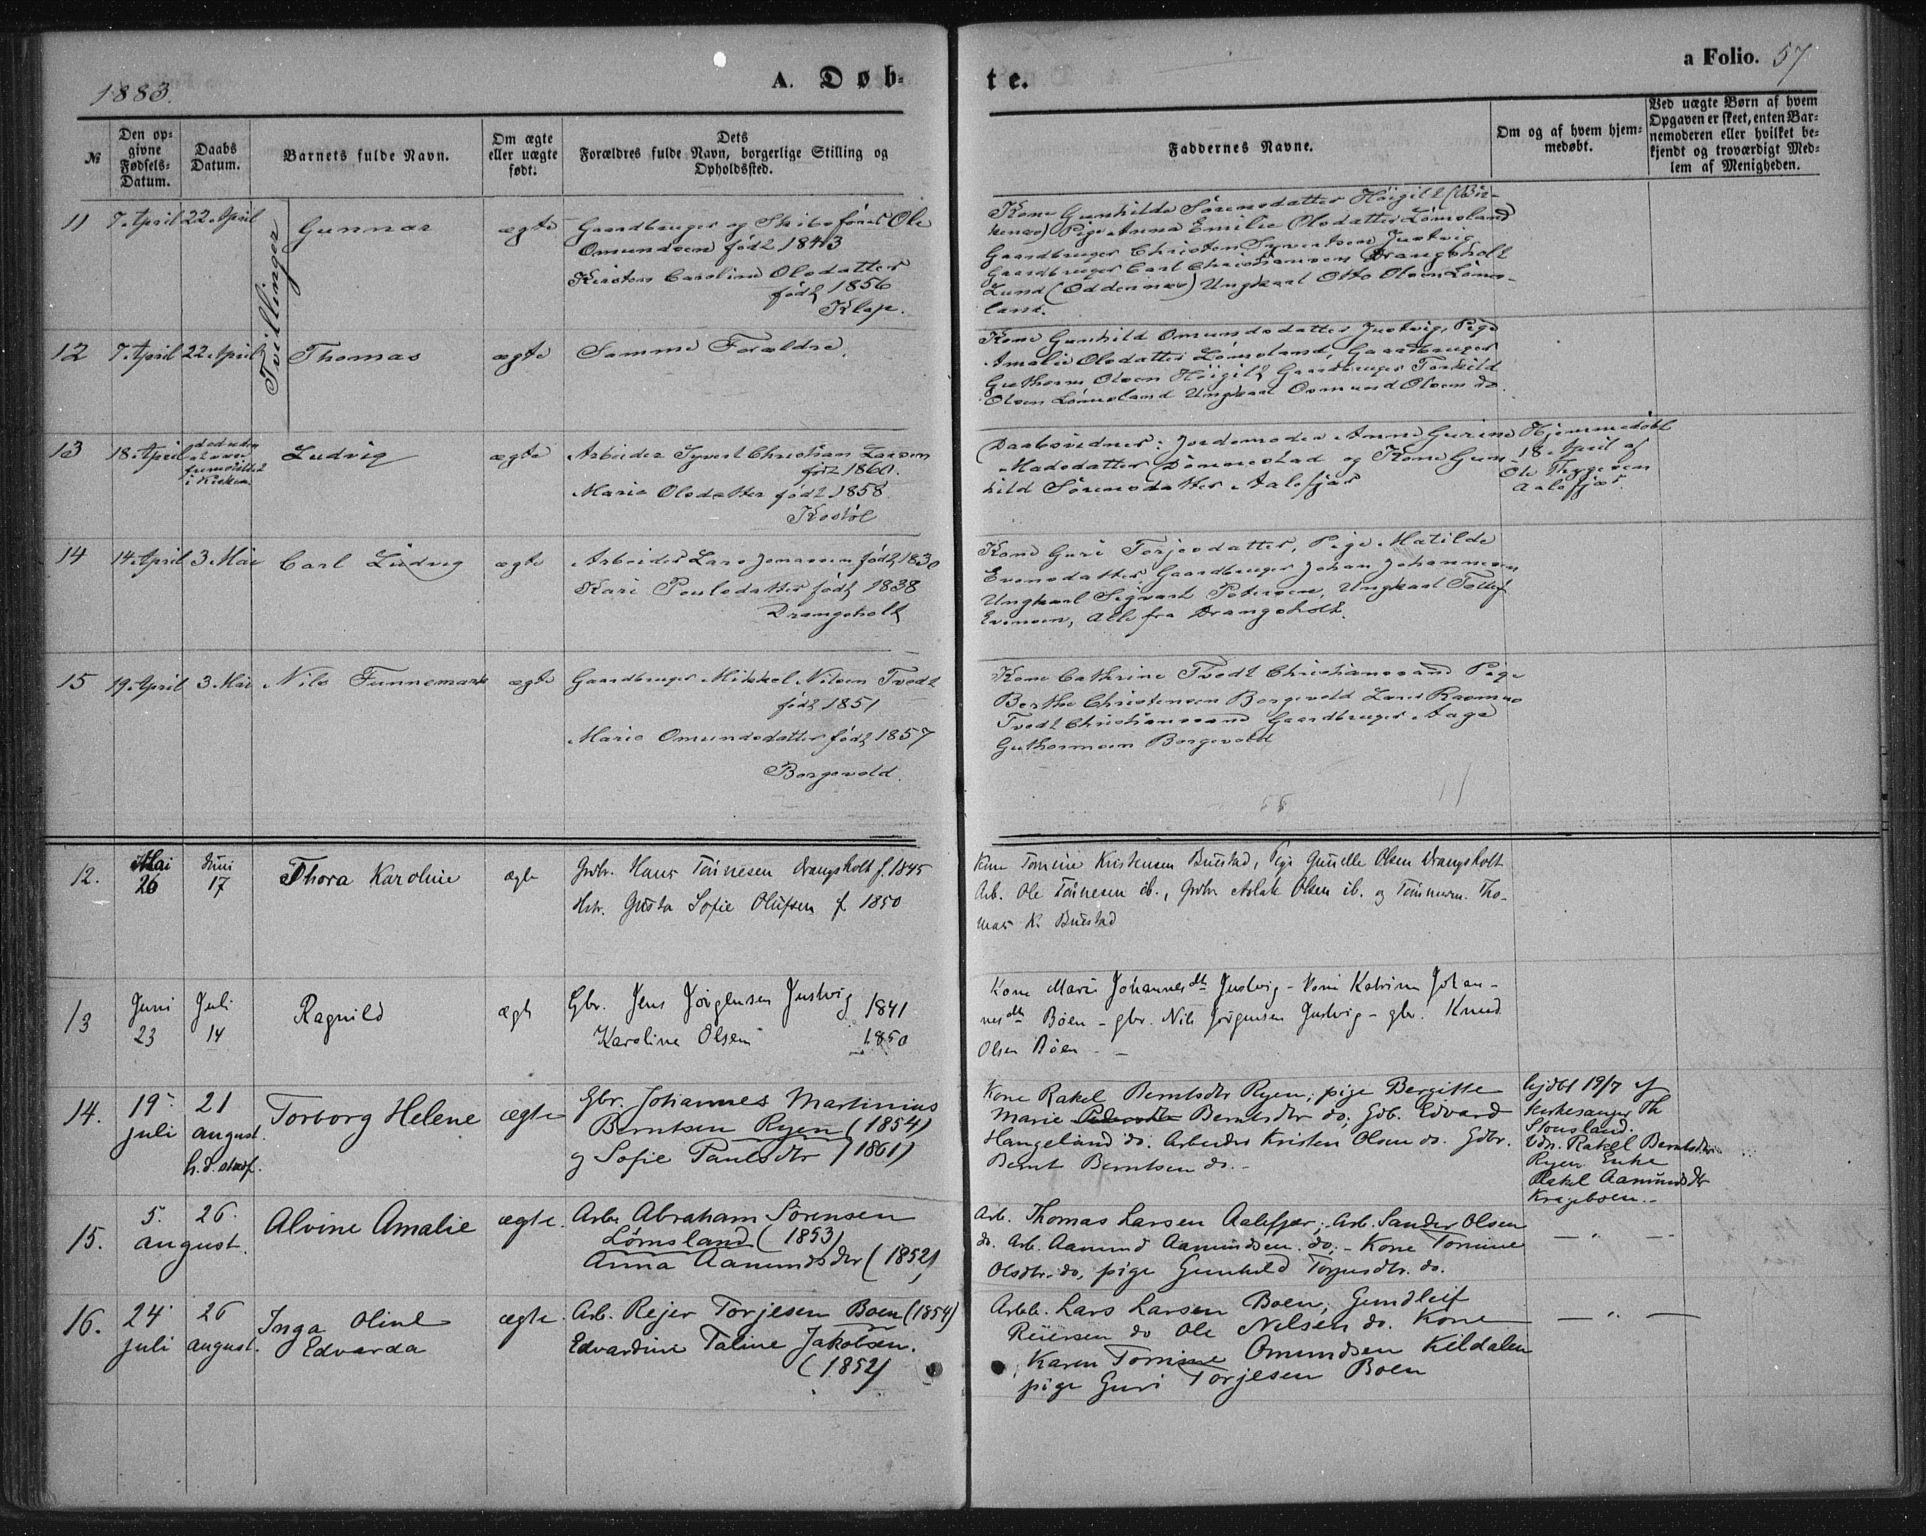 a Folio. 57
1883.
A. Døb-
te.
№
Den op-
givne
Fødsels-
Datum.
Daabs
Datum.
Barnets fulde Navn.
Om ægte
eller uægte
født.
Dets
Forældres fulde Navn, borgerlige Stilling og
Opholdssted.
Faddernes Navne.
Om og af hvem hjem-
medøbt.
Ved uægte Børn af hvem
Opgaven er skeet, enten Bar-
nemoderen eller hvilket be-
kjendt og troværdigt Med-
lem af Menigheden.
Tvillinger
11 7. April 22. April Gunnar ægte
Gaardbruger og Skibsfører Ole
Omundsen født 1843
Kirsten Caroline Olsdatter
født 1856
Klep.
Kone Gunhilde Sørensdatter Høigilt (Bir-
kenes) Pige Anna Emilie Olsdatter Lømsland
Gaardbruger Christen Syvertsen Justvig
Gaardbruger Carl Christiansen Drangsholt
Lund (Oddernes) Ungkarl Otto Olsen Løms-
land.
12 7. April 22. April Thomas ægte
Samme Forældre.
Kone Gunhild Omundsdatter Justvig, Pige
Amalie Olsdatter Lømsland, Gaardbruger
Guthorm Olsen Høigilt Gaardbruger Torkild
Olsen Lømsland Ungkarl Osmund Olsen do.
13 18. April
død uden
at være
fremstillet
i Kirken
Ludvig ægte
Arbeider Syvert Christian Larsen
født 1860.
Marie Olsdatter født 1858.
Kostøl
Daabsvidner: Jordemoder Anne Gurine
Madsdatter Dønnestad og Kone Gun-
hild Sørensdatter Aalefjær
Hjemmedøbt
18 April af
Ole Thygesen
Aalefjær.
14 14. April 3. Mai Carl Ludvig ægte
Arbeider Lars Jonassen født 1830
Kari Poulsdatter født 1838
Drangsholt
Kone Guri Torjesdatter, Pige Matilde
Evensdatter Gaardbruger Johan Johannesen
Ungkarl Sigvart Petersen, Ungkarl Tollef
Evensen, Alle fra Drangsholt.
15 19. April 3. Mai Nils Funnemark ægte
Gaardbruger Mikkel Nilsen Tvedt
født 1851
Marie Omundsdatter født 1857
Borgevold.
Kone Cathrine Tvedt Christianssand Pige
Berthe Christensen Borgevold Lars Rasmus
Tvedt Christianssand Gaardbruger Aage
Guthormsen Borgevold
12. Mai
26
Juni
17
Thora Karoline ægte
Grdbr. Hans Tönnesen Drangsholt f. 1845
Hstr. Gusta Sofie Olufsen f 1850
Kone Tomine Kristensen Buestad, Pige Gunelle Olsen Drangsholt
Arb. Ole Tönnesen ib., Grdbr Aslak Olsen ib. og Tömmerm. Tho-
mas K. Buestad
13 Juni
23
Juli
14
Ragnild ægte
Gbr. Jens Jörgensen Justvig 1841
Karoline Olsen 1850
Kone Mari Johannesdtr Justvig - Kone Katrine Johan-
nesdtr Böen - gbr. Nils Jörgensen Justvig - gbr. Knud
Olsen Böen -
14. 19.
juli
21
august.
Torborg Helene ægte
Gbr. Johannes Martinius
Berntsen Ryen (1854)
og Sofie Paulsdtr (1861)
Kone Rakel Berntsdtr Ryen; pige Bergitte
Marie Berntsdtr do, Gdb. Edvard
Hangeland do. Arbeider Kristen Olsen do. Gdbr.
Bernt Berntsen do. -
hjdbt 19/7 af
kirkesanger Th
Stousland.
Vdn. Rakel Berntsdtr
Ryen Enke
Rakel Aamundsdtr
Krageboen. -
15. 5.
august.
26.
Alvine Amalie ægte.
Arb. Abraham Sörensen
Lömsland (1853)
Anna Aamundsdtr (1852)
Arb. Thomas Larsen Aalefjær; Arb. Sander Olsen
do. Arb. Aamund Aamundsen. do, - Kone Tomine
Olsdtr. do, pige Gunhild Torjusdtr. do.
16. 24
juli
26
august.
Inga Oline
Edvarda
ægte.
Arb. Rejer Torjesen Boen (1854)
Edvardine Taline Jakobsen.
(1852)
Arbb. Lars Larsen Boen; Gundleif
Reiersen do Ole Nilsen do. Kone
Karen Tomine Omundsen Kildalen
pige Guri Torjesen Boen